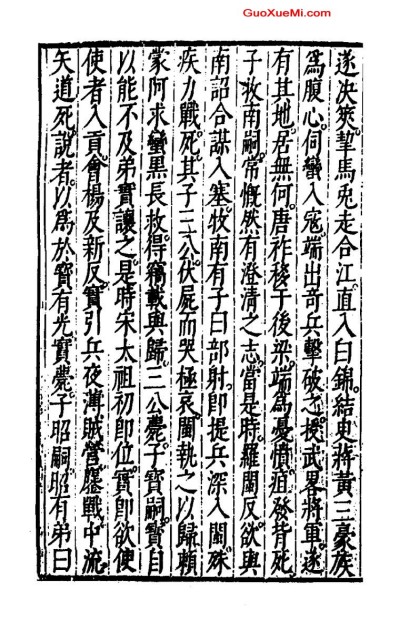 GuoXueMi.com
遂决筞挈馬兎走合江直入曰錦結史蔣黃三豪族
爲腹心伺蠻入寇端出竒兵擊破之授武畧將軍遂
有其地居無何唐祚移于後梁端爲憂憤疽發背死
子牧南嗣常慨然有澄清之志當是時羅閩反欲與
南詔合謀入塞牧南有子曰部射即提兵深入閩殊
疾力戰死其子三公伏屍而哭極哀閩執之以歸賴
蒙阿求蠻黑長救得竊載與歸三公薨子寶嗣寶自
以能不及弟實讓之是時宋太祖初即位實即欲使
使者入貢會楊及新反實引兵夜薄賊營鏖戰中流
矢道死說者以爲於寶有光寶薨子昭嗣昭有弟曰